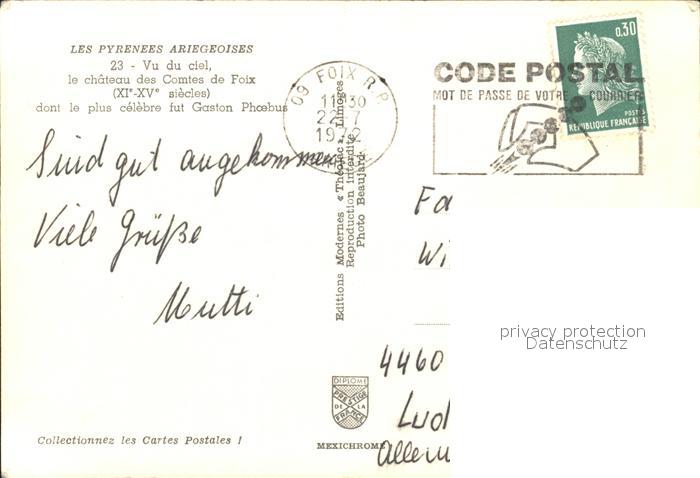 LES PYRENEES ARIEGEOISES
23 - Vu du ciel,
le château des Comtes de Foix
(XIe-XVe siècles)
dont le plus célèbre fut Gaston Phœbus
Sind gut angekommen
Viele Grüße
Mutti
Collectionnez les Cartes Postales !
09 FOIX R.P.
11H30
22-7
1972
Editions Modernes « Théojac », Limoges
Reproduction interdite
Photo Beaujard
DIPLOME
PRESTIGE
DE LA
FRANCE
MEXICHROME
CODE POSTAL
MOT DE PASSE DE VOTRE COURRIER
0,30
POSTES
REPUBLIQUE FRANÇAISE
Fa
Wi
4460
Lud
Allem
privacy protection
Datenschutz